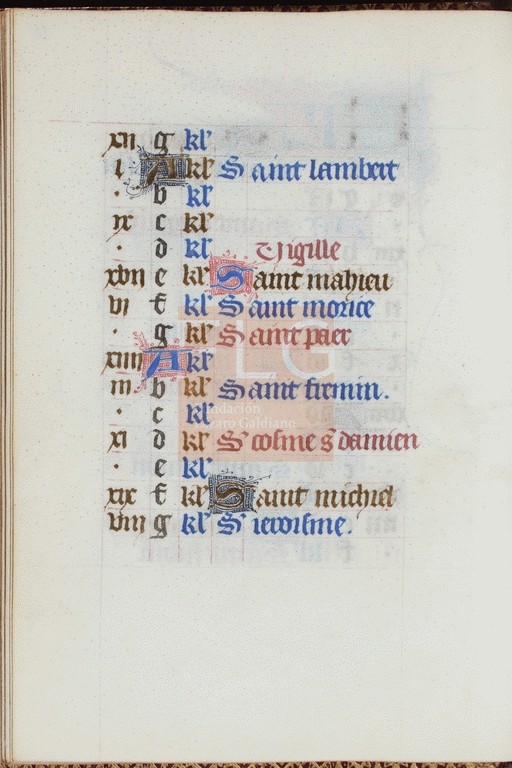 xii g kl'
i A kl' Saint lambert
. b kl'
ix c kl'
. d kl' Vigille
xvii e kl' Saint mahieu
vi f kl' Saint morice
. g kl' Saint piaer
xiiii A kl'
iii b kl' Saint firmin.
. c kl'
xi d kl' S' cosme s' damien
. e kl'
xix f kl' Saint michiel
viii g kl' S' ieroisme.
FLG
Fundación
Lázaro Galdiano